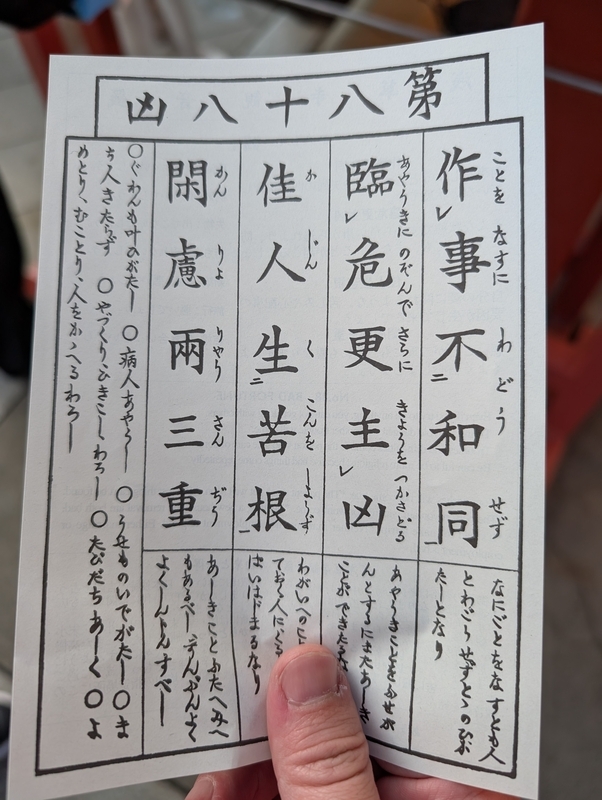 第八十八凶
作事不和同
ことを なすに わ どう せず
なにごとをなすとも人
とわごうせずとゝのひが
たしとなり
臨危更主凶
あやうきに のぞんで さらに きようを つかさどる
あやうきことをふせが
んとするにまたあしき
ことができたる
佳人生苦根
か じん く こんを しようず
わがいへの
ておく人に
はいはじまるなり
閑慮兩三重
かん りよ りやう さん ぢう
あしきことふたへみへ
もあるべし ずんぶんよく
よくしんじんすべし
○ぐわんも叶ひがたし ○病人あやうし ○うせものいでがたし ○ま
ち人きたらず ○やづくりひきこしわろし ○たびだちあしく ○よ
めとり、むことり、人をかゝへるわろし